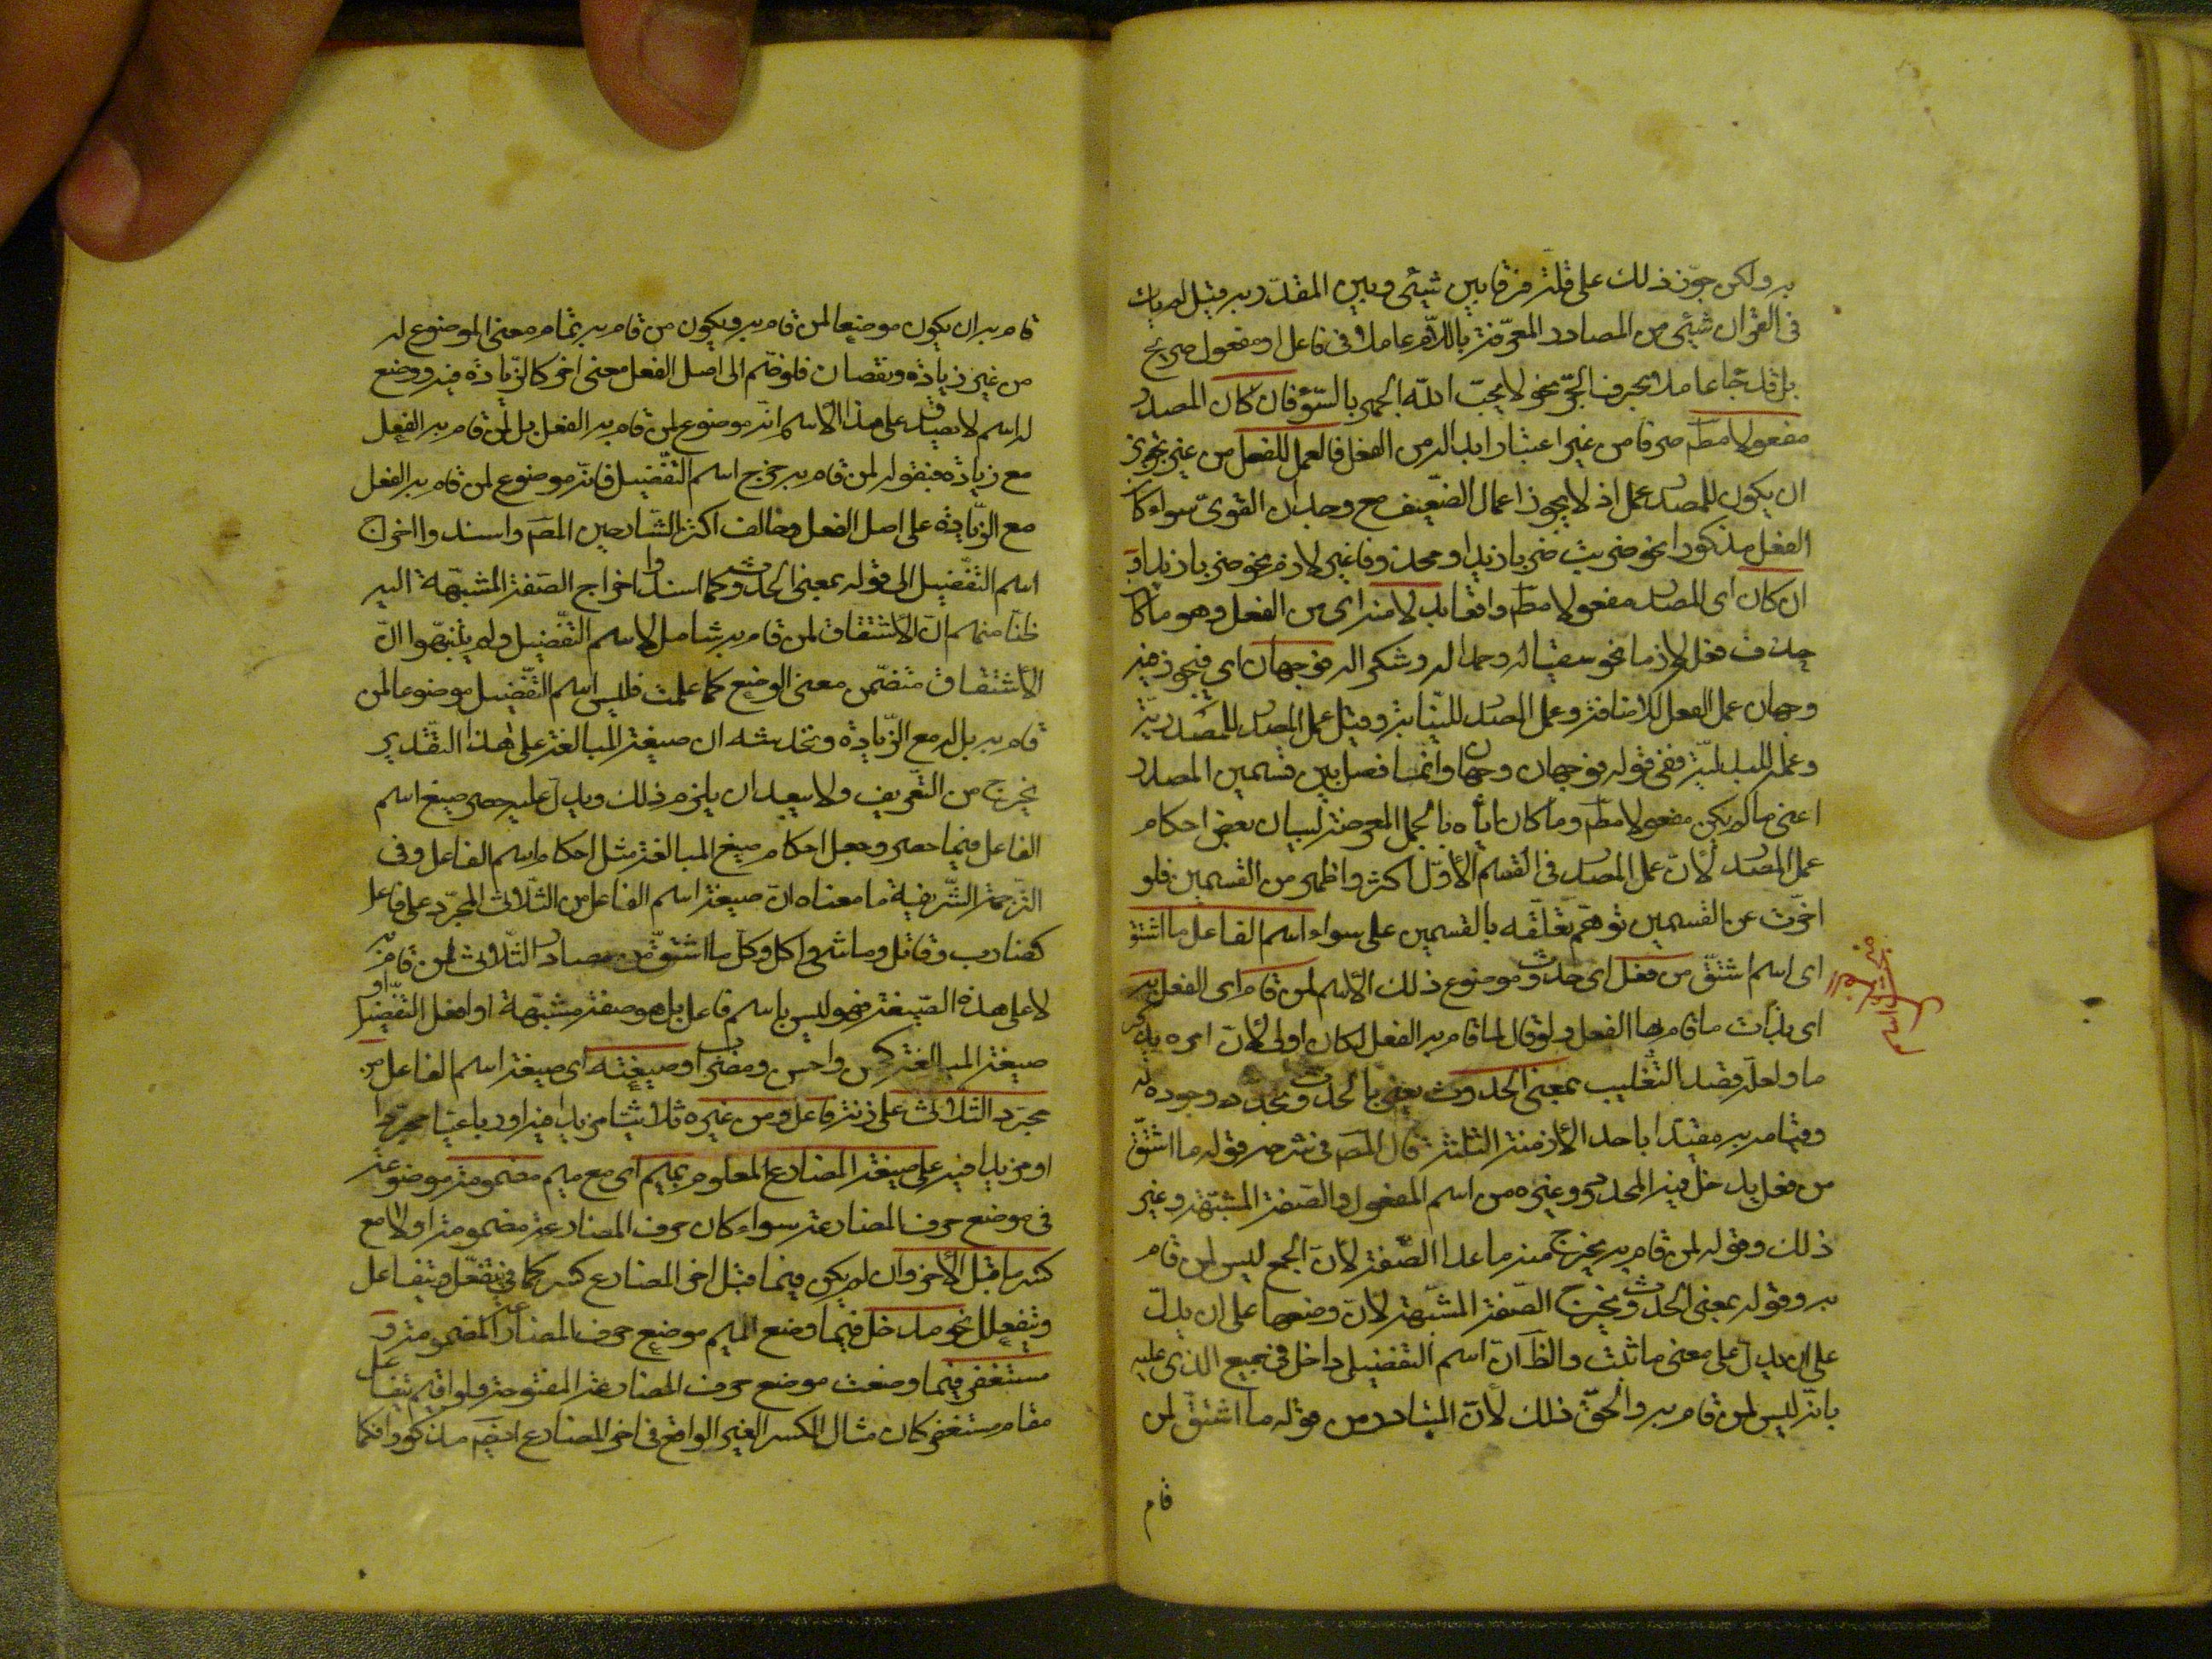 به ولكن جوز ذلك على قلة فرقا بين شيئى وبين المقدر به قيل لم يات
فى القرآن شيئى من المصادر المعرفة باللام عاملا فى فاعل او مفعول صريح
بل قد جاء عاملا بحرف الجر نحو لا يحب الله الجهر بالسوء فان كان المصدر
مفعولا مط صرفا من غير اعتبار ابداله من الفعل فالعمل للفعل من غير تجويز
ان يكون للمصدر عمل اذ لا يجوز اعمال الضعيف مع وجدان القوى سواء كا
الفعل مذكورا نحو ضربت ضربا زيدا او محذوفا غير لازم نحو ضربا زيدا و
ان كان اى المصدر مفعولا مط واقعا بدلا منه اى من الفعل وهو ما كا
حذف فعله لازما نحو سقيا له وحمدا له وشكرا له فوجهان اى فيجوز فيه
وجهان عمل الفعل للاصالة وعمل المصدر للنيابة وقيل عمل المصدر للمصدرية
وعمله للبدلية ففى قوله فوجهان وجهان وانما فصل بين قسمين المصدر
اعنى ما لم يكن مفعولا مط وما كان اياه بالجمل المعترضة لبيان بعض احكام
عمل المصدر لان عمل المصدر فى القسم الاول اكثر واظهر من القسمين فلو
اخرت عن القسمين توهم تعلقه بالقسمين على سواء اسم الفاعل ما اشتق
اى اسم اشتق من فعل اى حدث وموضوع ذلك الاسم لمن قام اى الفعل به
اى بذات ما قام بها الفعل ولو قال لما قام به الفعل لكان اولى لان امره يذكر
ما ولعله قصد التغليب بمعنى الحدوث يعنى بالحدوث تجدد وجوده له
وقيامه به مقيدا باحد الازمنة الثلثة قال المص فى شرحه قوله ما اشتق
من فعل يدخل فيه المحدود وغيره من اسم المفعول والصفة المشبهة وغير
ذلك وقوله لمن قام به يخرج منه ما عدا الصفة لان الجمع ليس لمن قام
به وقوله بمعنى الحدوث يخرج الصفة المشبهة لان وضعها على ان يدل
على ان يدل على معنى ثابت والظ ان اسم التفضيل داخل فى جميع الذى عليه
بانه ليس لمن قام به والحق ذلك لان المتبادر من قوله ما اشتق لمن
قام
اسم الفاعل
قام به ان يكون موضوعا لمن قام به ويكون من قام به تمام معنى الموضوع له
من غير زيادة ونقصان فلو ضم الى اصل الفعل معنى اخر كالزيادة فيه ووضع
له اسم لا يصدق على هذا الاسم انه موضوع لمن قام به الفعل بل لمن قام به الفعل
مع زيادة فبقوله لمن قام به خرج اسم التفضيل فانه موضوع لمن قام به الفعل
مع الزيادة على اصل الفعل وخالف اكثر الشارحين المص واسندوا اخراج
اسم التفضيل الى قوله بمعنى الحدوث كما اسندوا اخراج الصفة المشبهة اليه
ظنا منهم ان الاشتقاق لمن قام به شامل لاسم التفضيل ولم يتنبهوا ان
الاشتقاق متضمن معنى الوضع كما علمت فليس اسم التفضيل موضوعا لمن
قام به بل له مع الزيادة ويخدشه ان صيغة المبالغة على هذا التقدير
يخرج من التعريف ولا يبعد ان يلزم ذلك ويدل عليه حصر صيغ اسم
الفاعل فيما حصر وجعل احكام صيغ المبالغة مثل احكام اسم الفاعل وفى
الترجمة الشريفية ما معناه ان صيغة اسم الفاعل من الثلاثى المجرد على فاعل
كضارب وقاتل وماش واكل وكل ما اشتق من مصادر الثلاثى لمن قام به
لا على هذه الصيغة فهو ليس باسم فاعل بل هو صفة مشبهة او افعل التفضيل او
صيغة المبالغة كحسن واحسن ومضراب وصيغته اى صيغة اسم الفاعل من
مجرد الثلاثى على زنة فاعل ومن غيره ثلاثيا مزيدا فيه او رباعيا مجردا
او مزيدا فيه على صيغة المضارع المعلوم بميم اى مع ميم مضمومة موضوعة
فى موضع حرف المضارعة سواء كان حرف المضارعة مضمومة اولا مع
كسر ما قبل الاخر وان لم يكن فيما قبل اخر المضارع كسر كما فى يتفعل ويتفاعل
ويتفعلل نحو مدخل فيما وضع الميم موضع حرف المضارعة المضمومة و
مستغفر فيما وضعت موضع حرف المضارعة المفتوحة ولو اقيم متفاعل
مقام مستغفر كان مثال الكسر الغير الواقع فى اخر المضارع ايضم مذكورا فكا